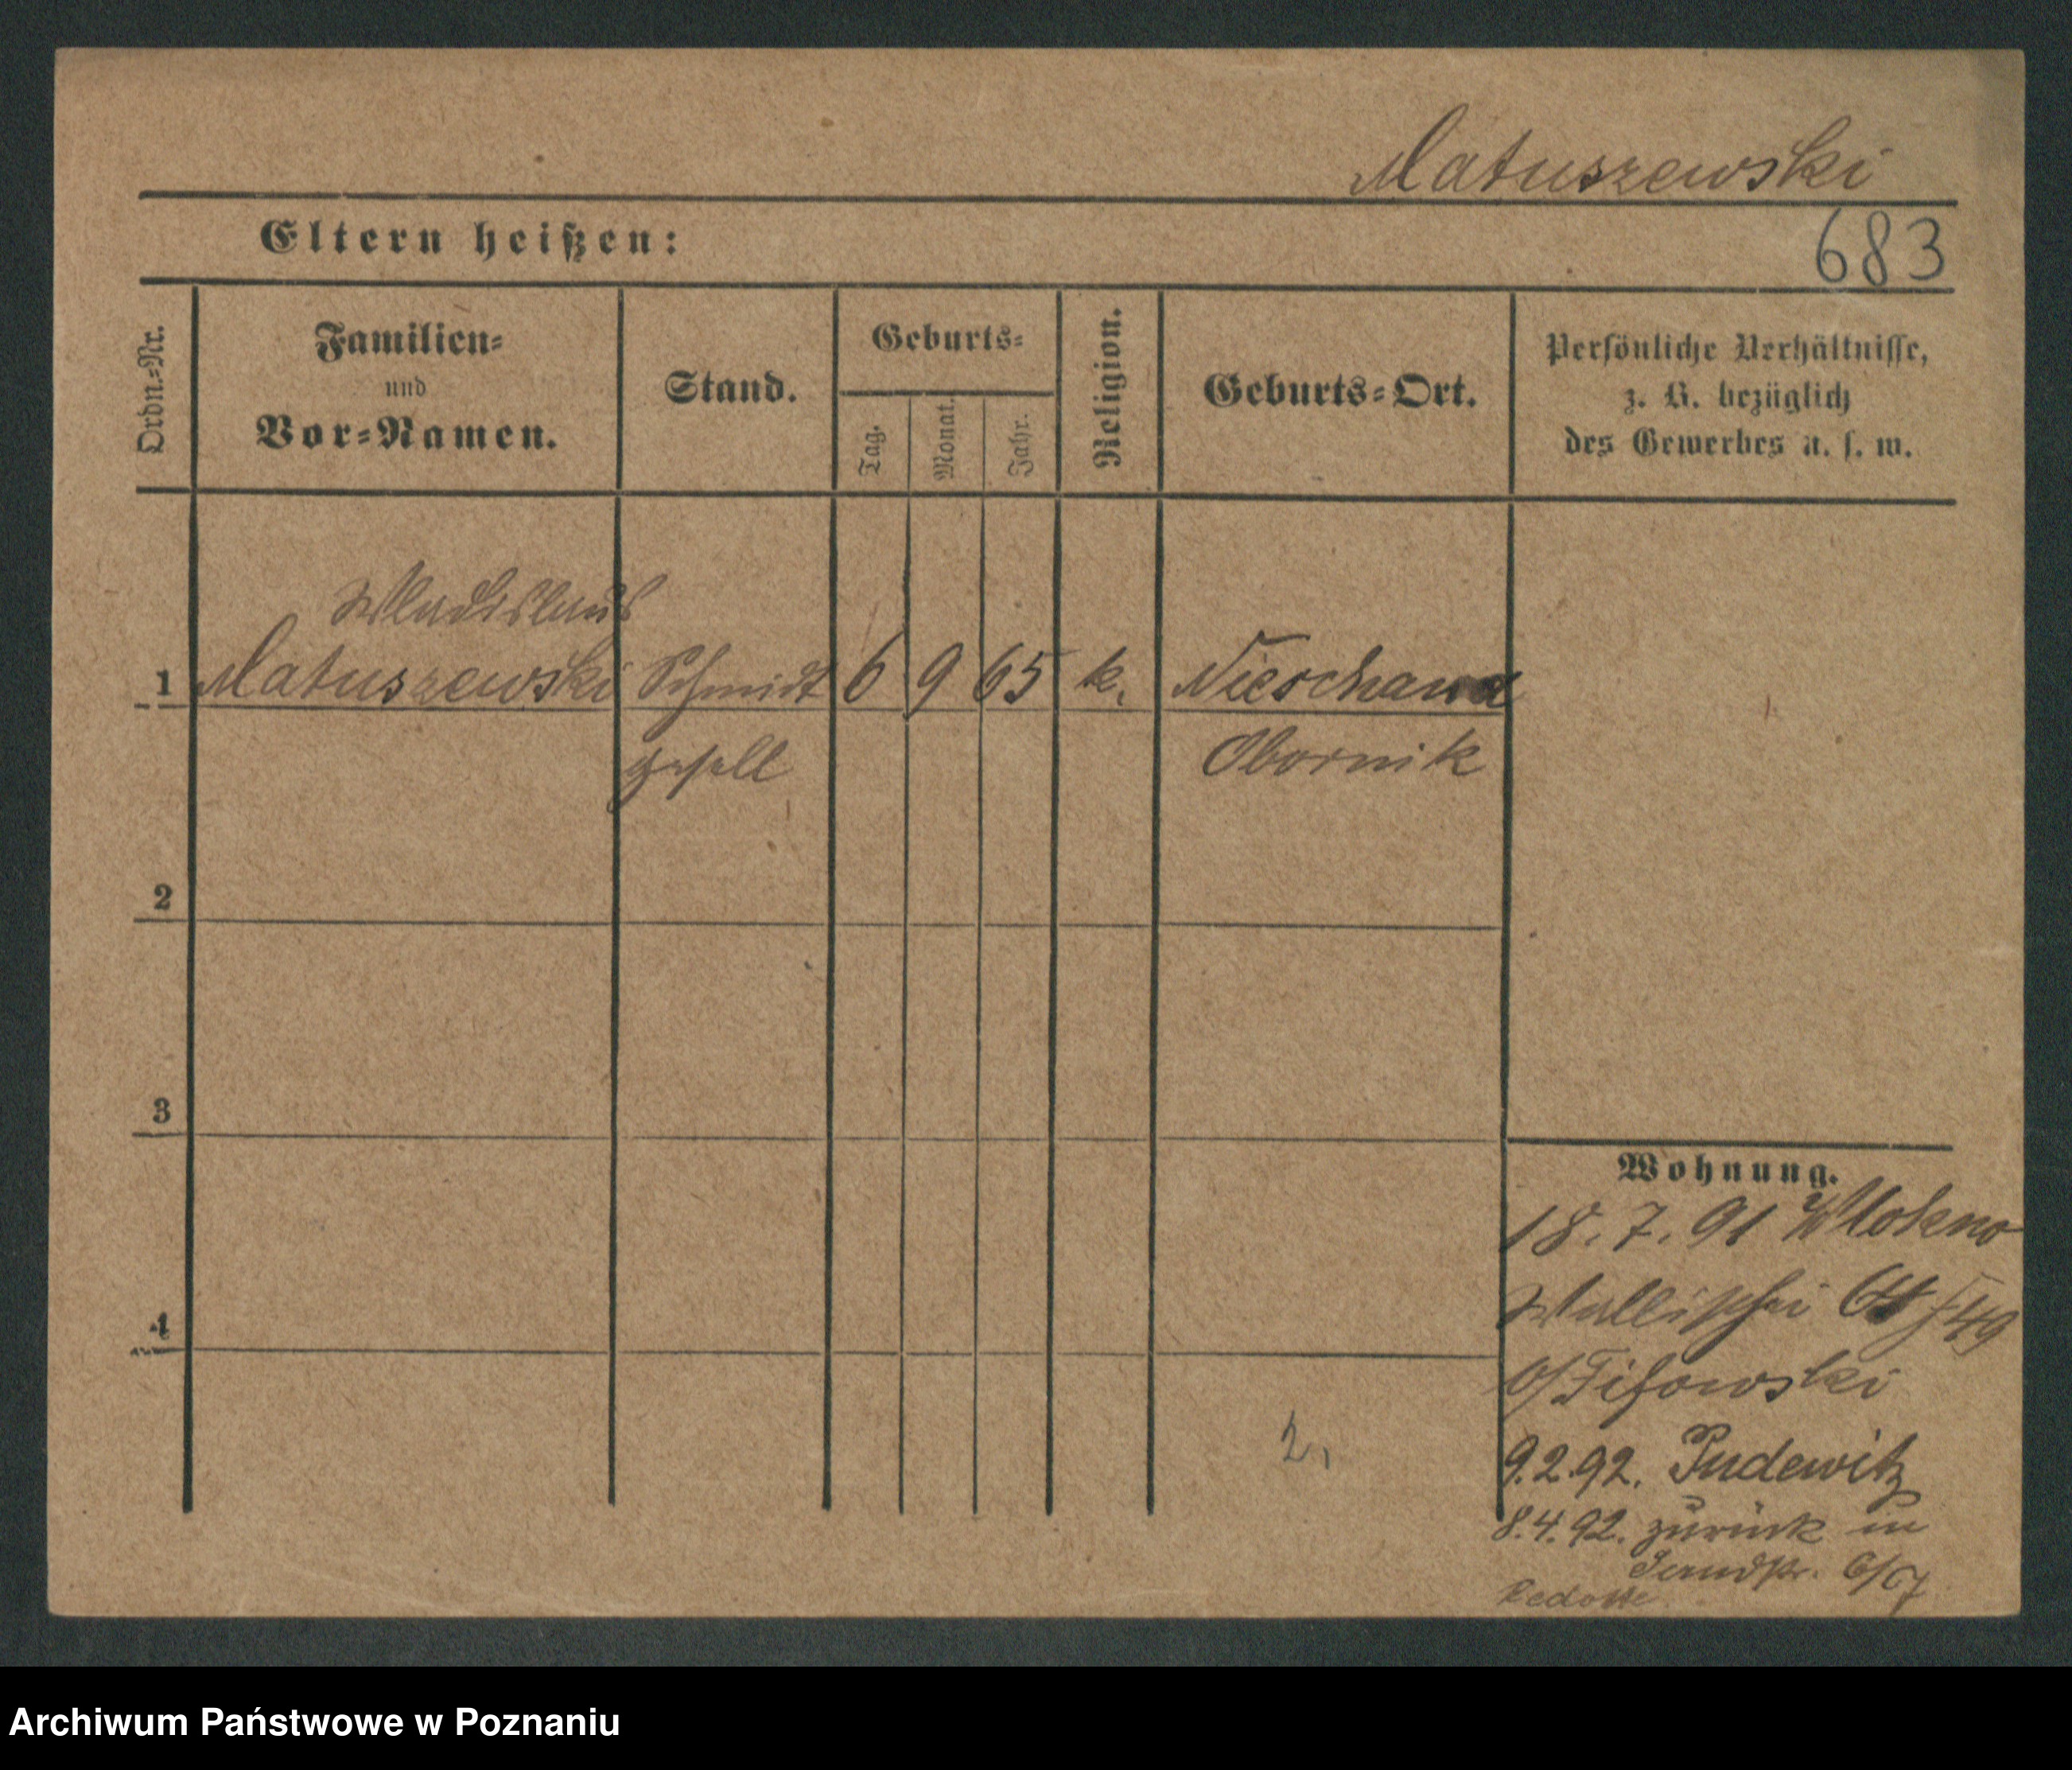 Matuszewski
Eltern heißen:
683
Ordn.-Nr.
Familien-
und
Vor-Namen.
Stand.
Geburts-
Tag.
Monat.
Jahr.
Religion.
Geburts-Ort.
Persönliche Verhältnisse,
z. B. bezüglich
des Gewerbes u. s. w.
Wladislaus
1 Matuszewski Schmidt 6 9 65 k.
gesell Obornik
2
3
4
Wohnung.
18. 7. 91 Wlokno
Wallischei
9.2.92. Pudewitz
8.4.92. zurück in
2,
Archiwum Państwowe w Poznaniu